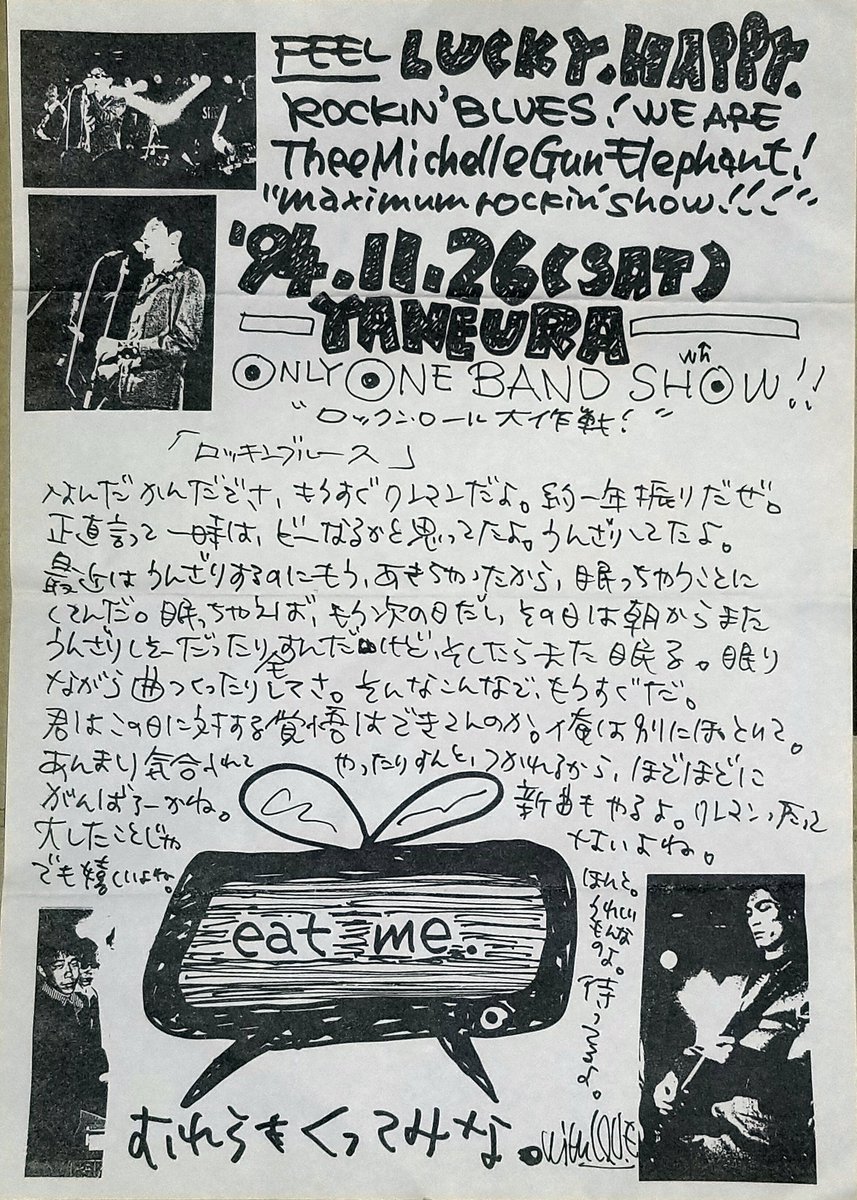 FEEL LUCKY. HAPPY.
ROCKIN' BLUES! WE ARE
Thee Michelle Gun Elephant!
"maximum rockin' show!!!"
'94.11.26(SAT)
YANEURA
ONLY ONE BAND SHOW!!
"ロックンロール大作戦!"
「ロッキンブルース」
なんだかんだでさ、もうすぐワンマンだよ。約一年振りだぜ。
正直言って一時は、どーなるかと思ってたよ。うんざりしてたよ。
最近はうんざりするのにもう、あきちゃったから、眠っちゃうことに
してんだ。眠っちゃえば、もう次の日だし、その日は朝からまた
うんざりしそーだったりすんだけど、そしたらまた眠る。眠り
ながら曲つくったりもしてさ。そんなこんなで、もうすぐだ。
君はこの日に対する覚悟はできてんのか。俺は別にほっといて。
あんまり気合入れて やったりすんと、つかれるから、ほどほどに
がんばろーかね。 新曲もやるよ。ワンマンったって
大したことじゃ ないよね。
でも嬉しいよね。
ほんと。
うれしい
もんな
のよ。
待ってるよ。
eat me.
おれらをくってみな。
with LOVE